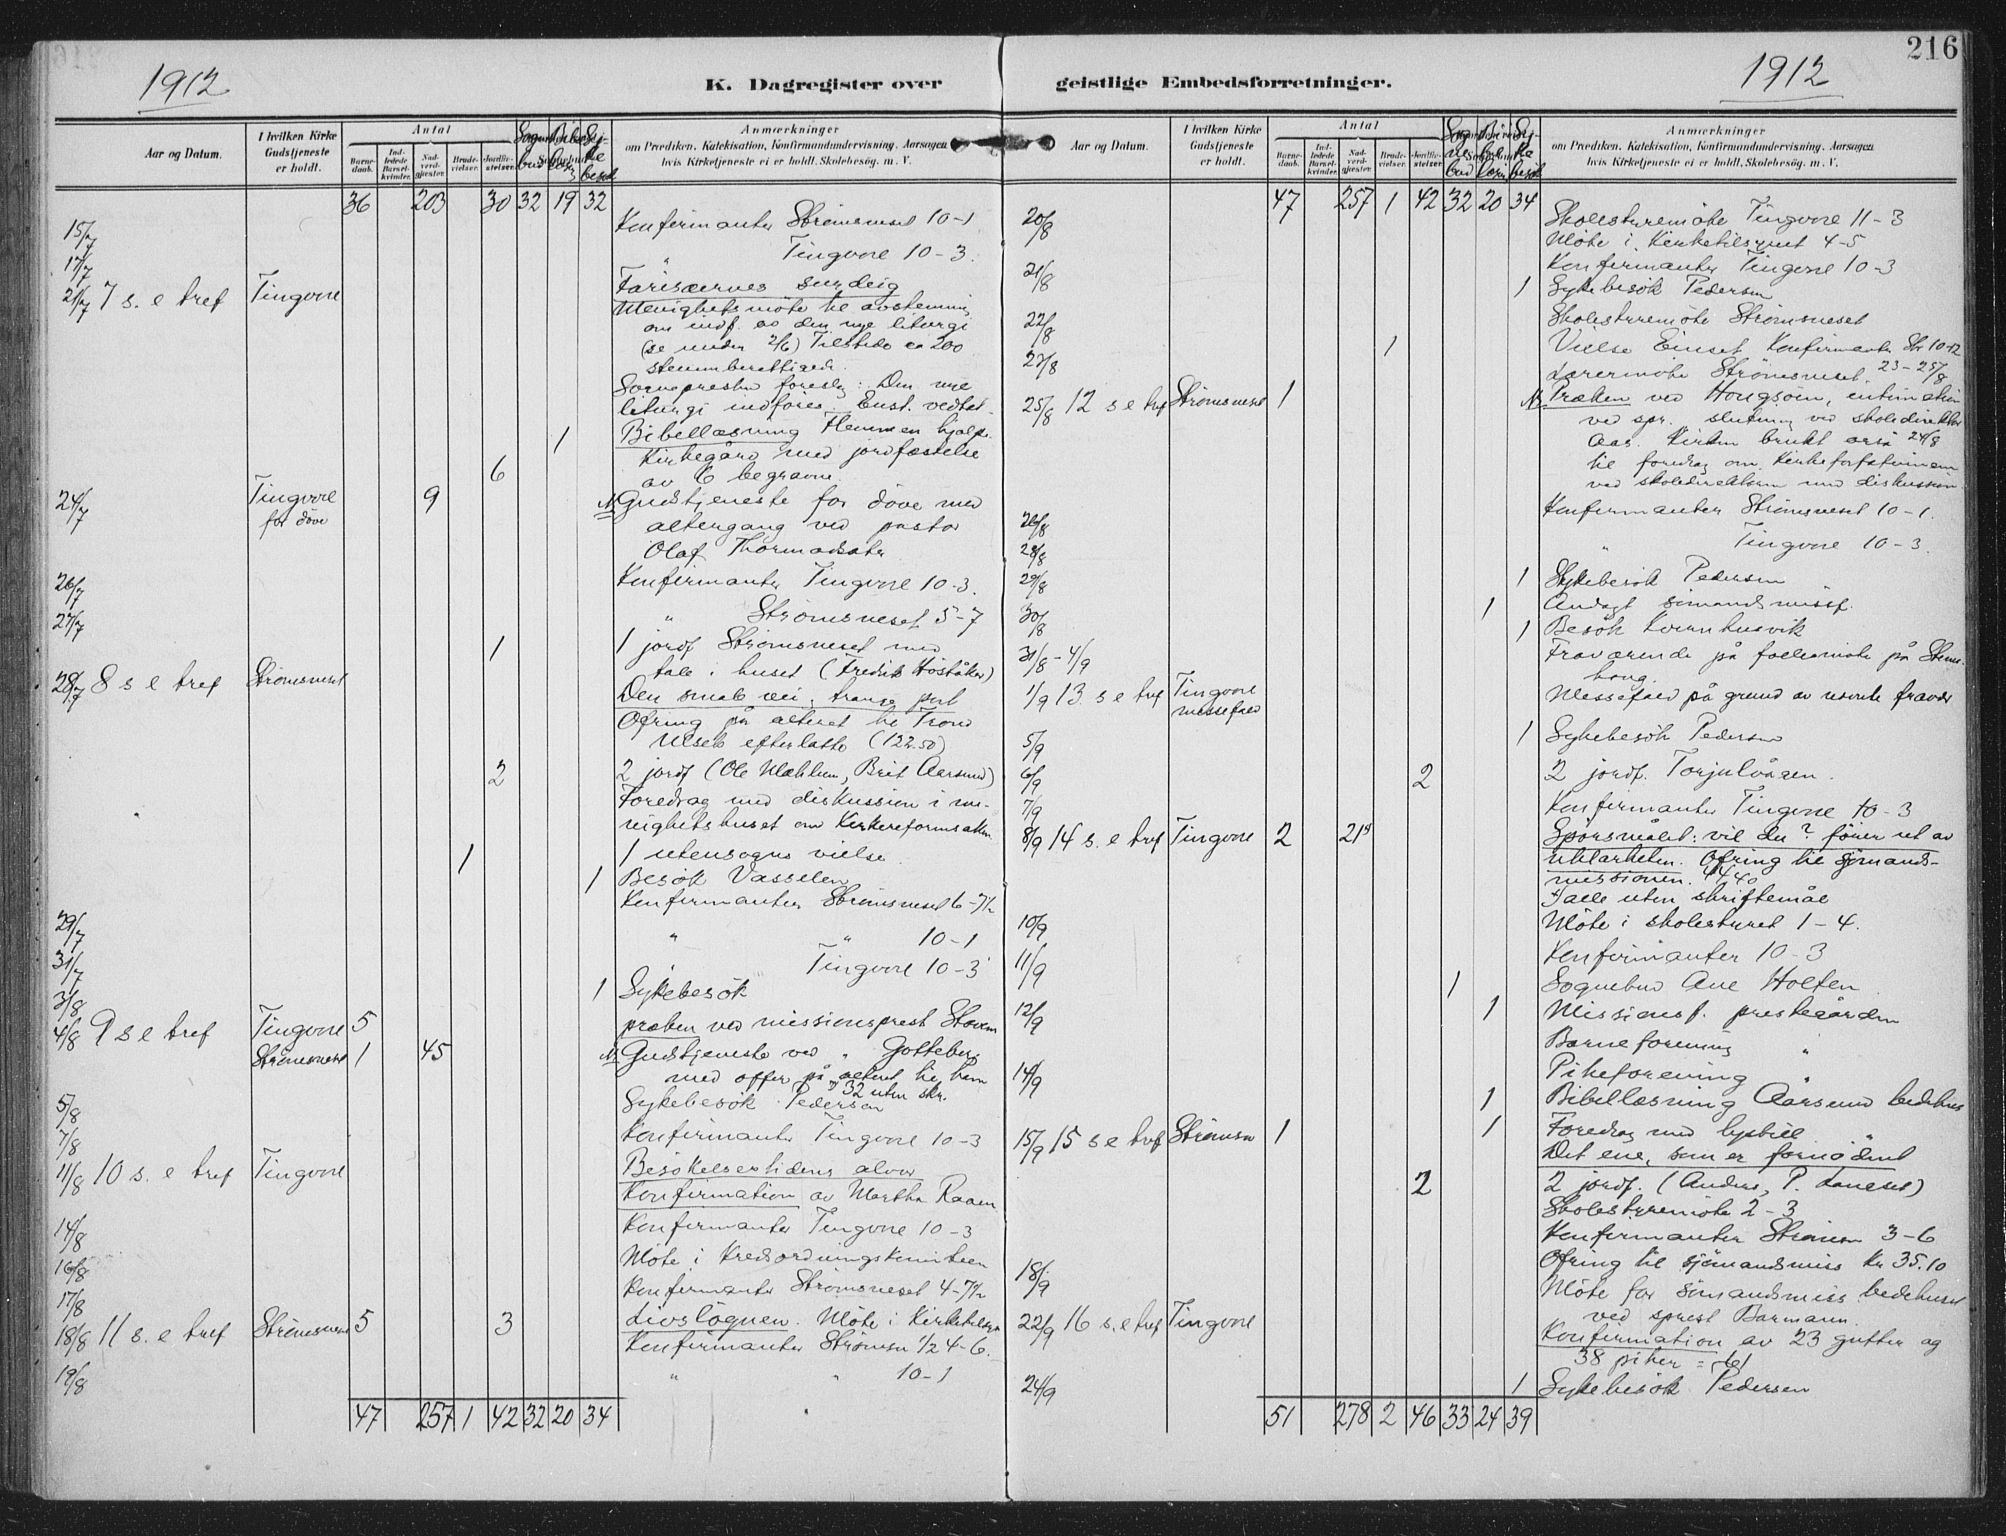 216
1912
K. Dagregister over
Aar og Datum.
I hvilken Kirke Gudstjeneste er holdt.
Antal
Barne-daab.
Ind-ledede Barsel-kvinder.
Nad-verd-gjester.
Brude-vielser.
Jordfæ-stelser.
Anmærkninger
om Prædiken. Katekisation, Konfirmandundervisning. Aarsagen
hvis Kirketjeneste ei er holdt. Skolebesög. m. V.
36 203 30 32 19 32
15/7 Konfirmanter Strömsneset 10-1
17/7 " Tingvoll 10-3.
21/7 7 s. e tref Tingvoll Farisæernes surdeig
Menighetsmöte til avstemning
om indf. av den nye liturgi
(se under 2/6) Tilstede ca 200
stemmeberettigede.
Sognepresten foreslog: Den nye
liturgi indföres. Enst. vedtat.
1 Bibellæsning Flemmen hjælpe-
kirkegård med jordfæstelse
6 av 6 begravne.
24/7 Tingvoll 9 N Gudstjeneste for döve med
for döve altergang ved pastor
Olaf
26/7 Konfirmanter Tingvoll 10-3.
27/7 " Strömsneset 5-7
1 1 jordf Strömsneset med
tale i huset (Fredrik Höståker)
28/7 8 s e tref Strömsneset Den smale vei, trange port
Ofring på alteret til Trond
Ulsets efterlatte (122.50)
2 2 jordf (Ole Mæhlum, Brit Aarsund)
Foredrag med diskussion i me-
nighetshuset om Kirkereformsaken
1 1 utensogns vielse.
1 Besök Vasselen
Konfirmanter Strömsneset 6-7½
29/7 " " 10-1
31/7 " Tingvoll 10-3
3/8 1 Sykebesök
4/8 9 s e tref Tingvoll 5 præken ved missionsprest
Strömsneset 1 45 N Gudstjeneste ved " Gotteberg
med offer på alteret til ham
32 uten skr.
5/8 Sykebesök Pedersen
7/8 Konfirmanter Tingvoll 10-3
11/8 10 s. e tref Tingvoll Besökelsestidens alvor
Konfirmation av Martha Raaen
14/8 Konfirmanter Tingvoll 10-3
16/8 Möte i Kredsordningskomiteen
17/8 Konfirmanter Strömsneset 4-7½
18/8 11 s. e tref Strömsneset 5 3 Livslögnen. Möte i Kirketilsyn
Konfirmanter Strömsn ½4-6.
19/8 " " 10-1
47 257 1 42 32 20 34
geistlige Embedsforretninger.
1912
Aar og Datum.
I hvilken Kirke Gudstjeneste er holdt.
Antal
Barne-daab.
Ind-ledede Barsel-kvinder.
Nad-verd-gjester.
Brude-vielser.
Jordfæ-stelser.
Anmærkninger
om Prædiken. Katekisation, Konfirmandundervisning. Aarsagen
hvis Kirketjeneste ei er holdt. Skolebesög. m. V.
47 257 1 42 32 20 34
20/8 Skolestyremöte Tingvoll 11-3
Möte i Kirketilsynet 4-5
21/8 Konfirmanter Tingvoll 10-3
1 Sykebesök Pedersen
22/8 Skolestyremöte Strömsneset
1 Vielse Einset Konfirmanter Str 10-12
27/8 Lærermöte Strömsneset. 23-25/8
25/8 12 s e tref Strömsneset 1 N Præken ved Hougsöen,
ved spr. slutning ved skoledirektör
Aas. Kirken brukt også 24/8
til foredrag om Kirkeforfatningen
ved skoledirektören med diskussion.
26/8 Konfirmanter Strömsneset 10-1.
28/8 " Tingvoll 10-3.
29/8 1 Sykebesök Pedersen
30/8 1 Andagt sömandsmissf.
1 Besök Kvernhusvik
31/8-4/9 Fraværende på fællesmöte på Stems-
haug.
1/9 13 s e tref Tingvoll Messefald på grund av nævnte fravær
messefald
5/9 1 Sykebesök Pedersen
6/9 2 2 jordf. Torjulvågen.
7/9 Konfirmanter Tingvoll 10-3
8/9 14 s. e tref Tingvoll 2 21 Spörsmålet: vil du? förer ut av
uklarheten. Ofring til sjömands-
missionen. 44.40
Falle uten skriftemål
10/9 Möte i skolestyret 1-4.
11/9 Konfirmanter 10-3
1 Sognebud Ane Holten
12/9 1 Missionsf. prestegården
Barneforening "
14/9 Pikeforening "
1 Bibellæsning Aarsund bedehus
15/9 15 s e tref Strömsn 1 1 Foredrag med lysbill "
Det ene, som er fornödent
2 2 jordf. (Anders, P. Laneset)
Skolestyremöte 2-3
Konfirmanter Strömsn 3-6
Ofring til sjömandsmiss kr 35.10
18/9 Möte for sömandsmiss bedehuset
ved sprest Barmann.
22/9 16 s. e tref Tingvoll Konfirmation av 23 gutter og
38 piker = 61
24/9 1 Sykebesök Pedersen
51 278 2 46 33 24 39